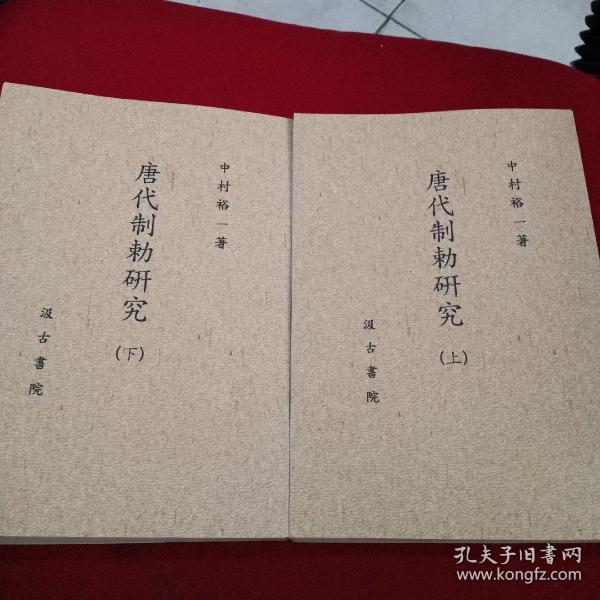 中村裕一著
唐代制勅研究
(下)
汲古書院
中村裕一著
唐代制勅研究
(上)
汲古書院
孔夫子旧书网
www.kongfz.com